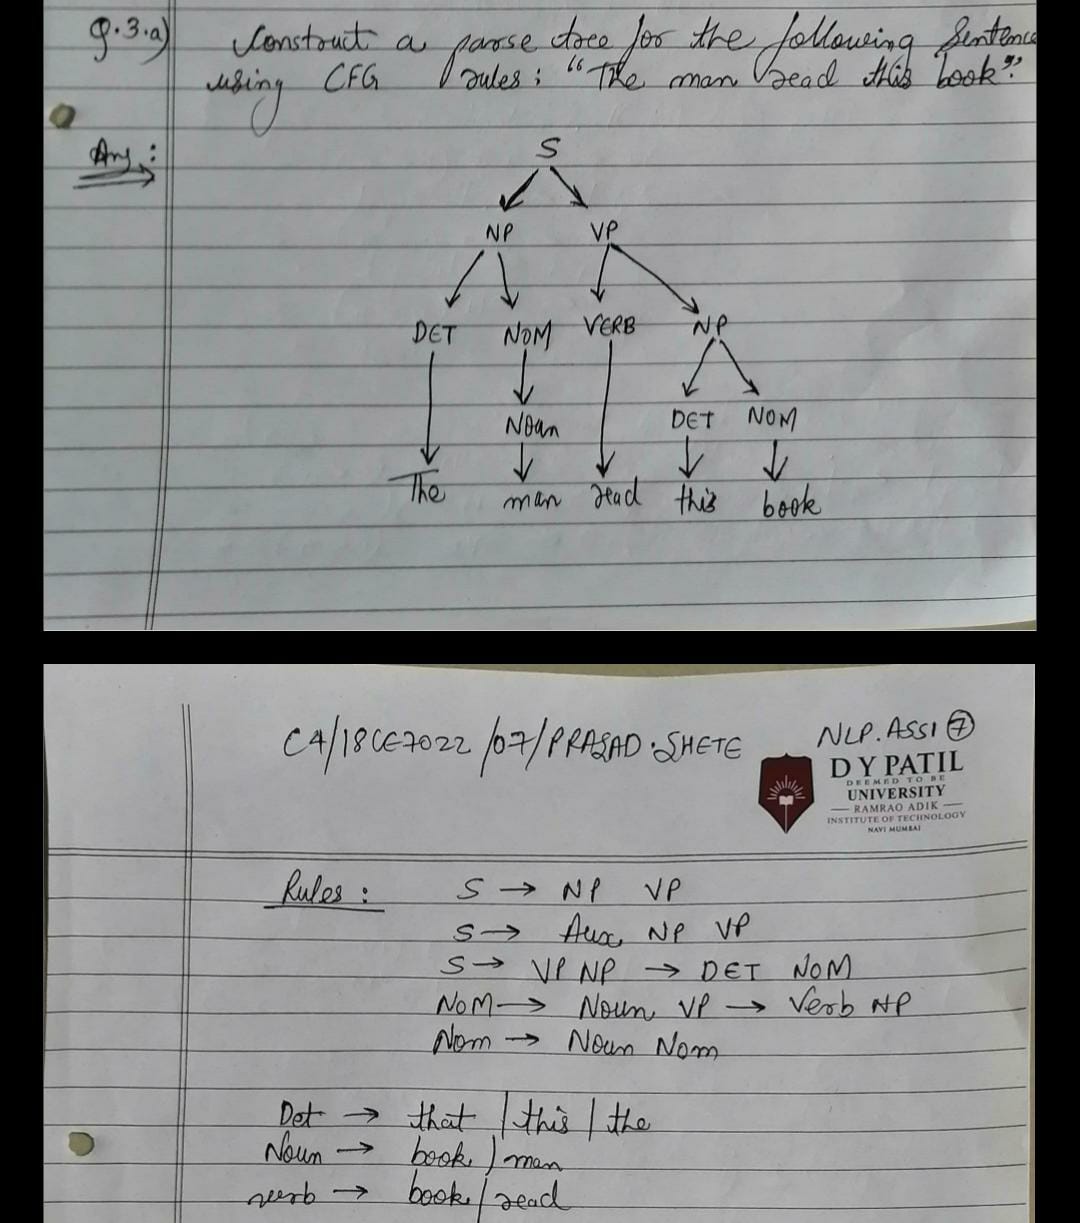 Q.3.a) Construct a parse tree for the following Sentence
using CFG rules: "The man read this book".
Ans:
S
NP VP
DET NOM VERB NP
Noun DET NOM
The man read this book
C4/18CE7022/07/PRASAD.SHETE NLP.ASSI 7
D Y PATIL
DEEMED TO BE
UNIVERSITY
RAMRAO ADIK
INSTITUTE OF TECHNOLOGY
NAVI MUMBAI
Rules: S → NP VP
S → Aux NP VP
S → VP NP → DET NOM
NOM → Noun VP → Verb NP
Nom → Noun Nom
Det → that | this | the
Noun → book | man
verb → book | read